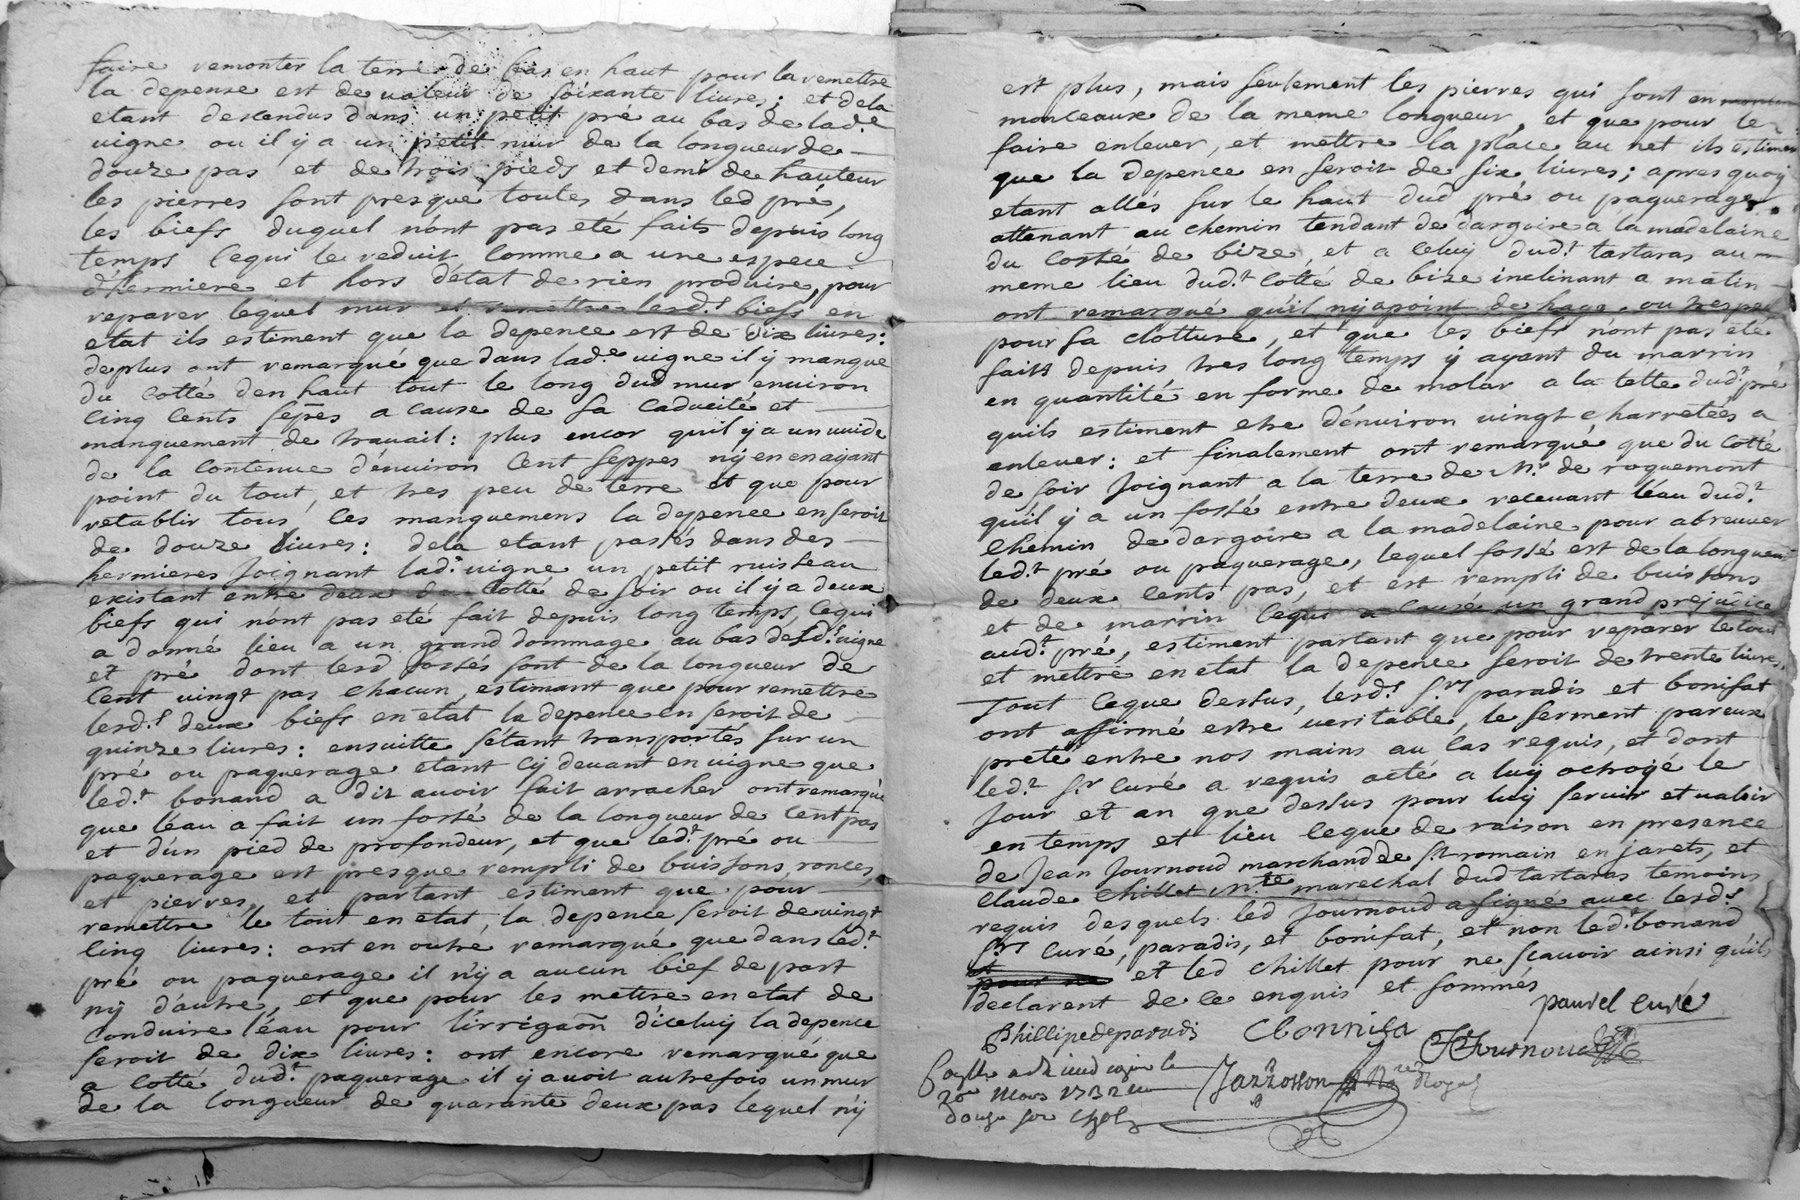 faire remonter la terre de bas en haut pour la remettre
la depense est de valeur de soixante livres; et dela
etant descendus dans un petit pré au bas de lad.e
vigne ou il y a un petit mur de la longueur de
douze pas et de trois pieds et demi de hauteur
les pierres sont presque toutes dans led pré,
les biefs duquel n'ont pas eté faits depuis long
temps cequi le reduit comme a une espece
d'hermiere et hors d'état de rien produire, pour
reparer lequel mur et remettre lesd.s biefs en
etat ils estiment que la depence est de dix livres:
deplus ont remarqué que dans lad.e vigne il y manque
du cotté d'en haut tout le long dud mur environ
cinq cents seps a cause de sa caducité et
manquement de travail: plus encor qu'il y a un vuide
de la contenue d'environ cent seppes n'y en en ayant
point du tout, et tres peu de terre et que pour
retablir tous ces manquemens la depence en seroit
de douze livres: dela etant passés dans des
hermieres joignant lad.e vigne un petit ruisseau
existant entre deux de cotté de soir ou il y a deux
biefs qui n'ont pas eté fait depuis long temps, cequi
a donné lieu a un grand dommage au bas desd.s vigne
et pré dont lesd fossés sont de la longueur de
cent vingt pas chacun, estimant que pour remettre
lesd.s deux biefs en etat la depence en seroit de
quinze livres: ensuitte s'étant transportés sur un
pré ou paquerage etant cy devant en vigne que
led.t bonand a dit avoir fait arracher ont remarqué
que l'éau a fait un fossé de la longueur de cent pas
et d'un pied de profondeur, et que led.t pré ou
paquerage est presque rempli de buissons, ronces,
et pierres, et partant estiment que pour
remettre le tout en etat, la depence seroit de vingt
cinq livres: ont en outre remarqué que dans led.t
pré ou paquerage il n'y a aucun bief de part
ny d'autre, et que pour les mettre en etat de
conduire l'éau pour l'irrigaōn d'iceluy la depence
seroit de dix livres: ont encore remarqué que
a cotté dud.t paquerage il y avoit autrefois un mur
de la longueur de quarante deux pas lequel n'y
est plus, mais seulement les pierres qui sont en
monceaux de la meme longueur, et que pour le
faire enlever, et mettre la place au net ils estiment
que la depence en seroit de six livres; apres quoy
etant allés sur le haut dud pré ou paquerage
attenant au chemin tendant de dargoire a la madelaine
du costé de bize, et a celuy dud.t tartaras au
meme lieu dud.t cotté de bise inclinant a matin
ont remarqué qu'il n'y a point de haye ou tres peu
pour sa clotture, et que les biefs n'ont pas eté
faits depuis tres long temps y ayant du marrin
en quantité en forme de molar a la tette dud.t pré
qu'ils estiment etre d'environ vingt charretées a
enlever: et finalement ont remarqué que du cotté
de soir joignant a la terre de Mr. de roquemont
qu'il y a un fossé entre deux recevant l'éau dud.t
chemin de dargoire a la madelaine pour abreuver
led.t pré ou paquerage, lequel fossé est de la longueur
de deux cents pas, et est rempli de buissons
et de marrin cequi a causé un grand prejudice
aud.t pré, estiment partant que pour reparer le tout
et mettre en etat la depence seroit de trente livres.
Tout ceque dessus, lesd.s s.rs paradis et bonifat
ont affirmé estre veritable, le serment par eux
preté entre nos mains au cas requis, et dont
led.t s.r curé a requis acté a luy octroyé le
jour et an que dessus pour luy servir et valoir
en temps et lieu ceque de raison en presence
de Jean Journoud marchand de s.t romain en jarets, et
claude chillet m.re marechal dud tartaras temoins
requis desquels led Journoud a signé avec lesd.s
s.rs curé, paradis, et bonifat, et non led.t bonand
et led chillet pour ne scavoir ainsi qu'ils
declarent de ce enquis et sommés
paurel curé
Phillipe de paradis
Journoud
20e Mars 1732